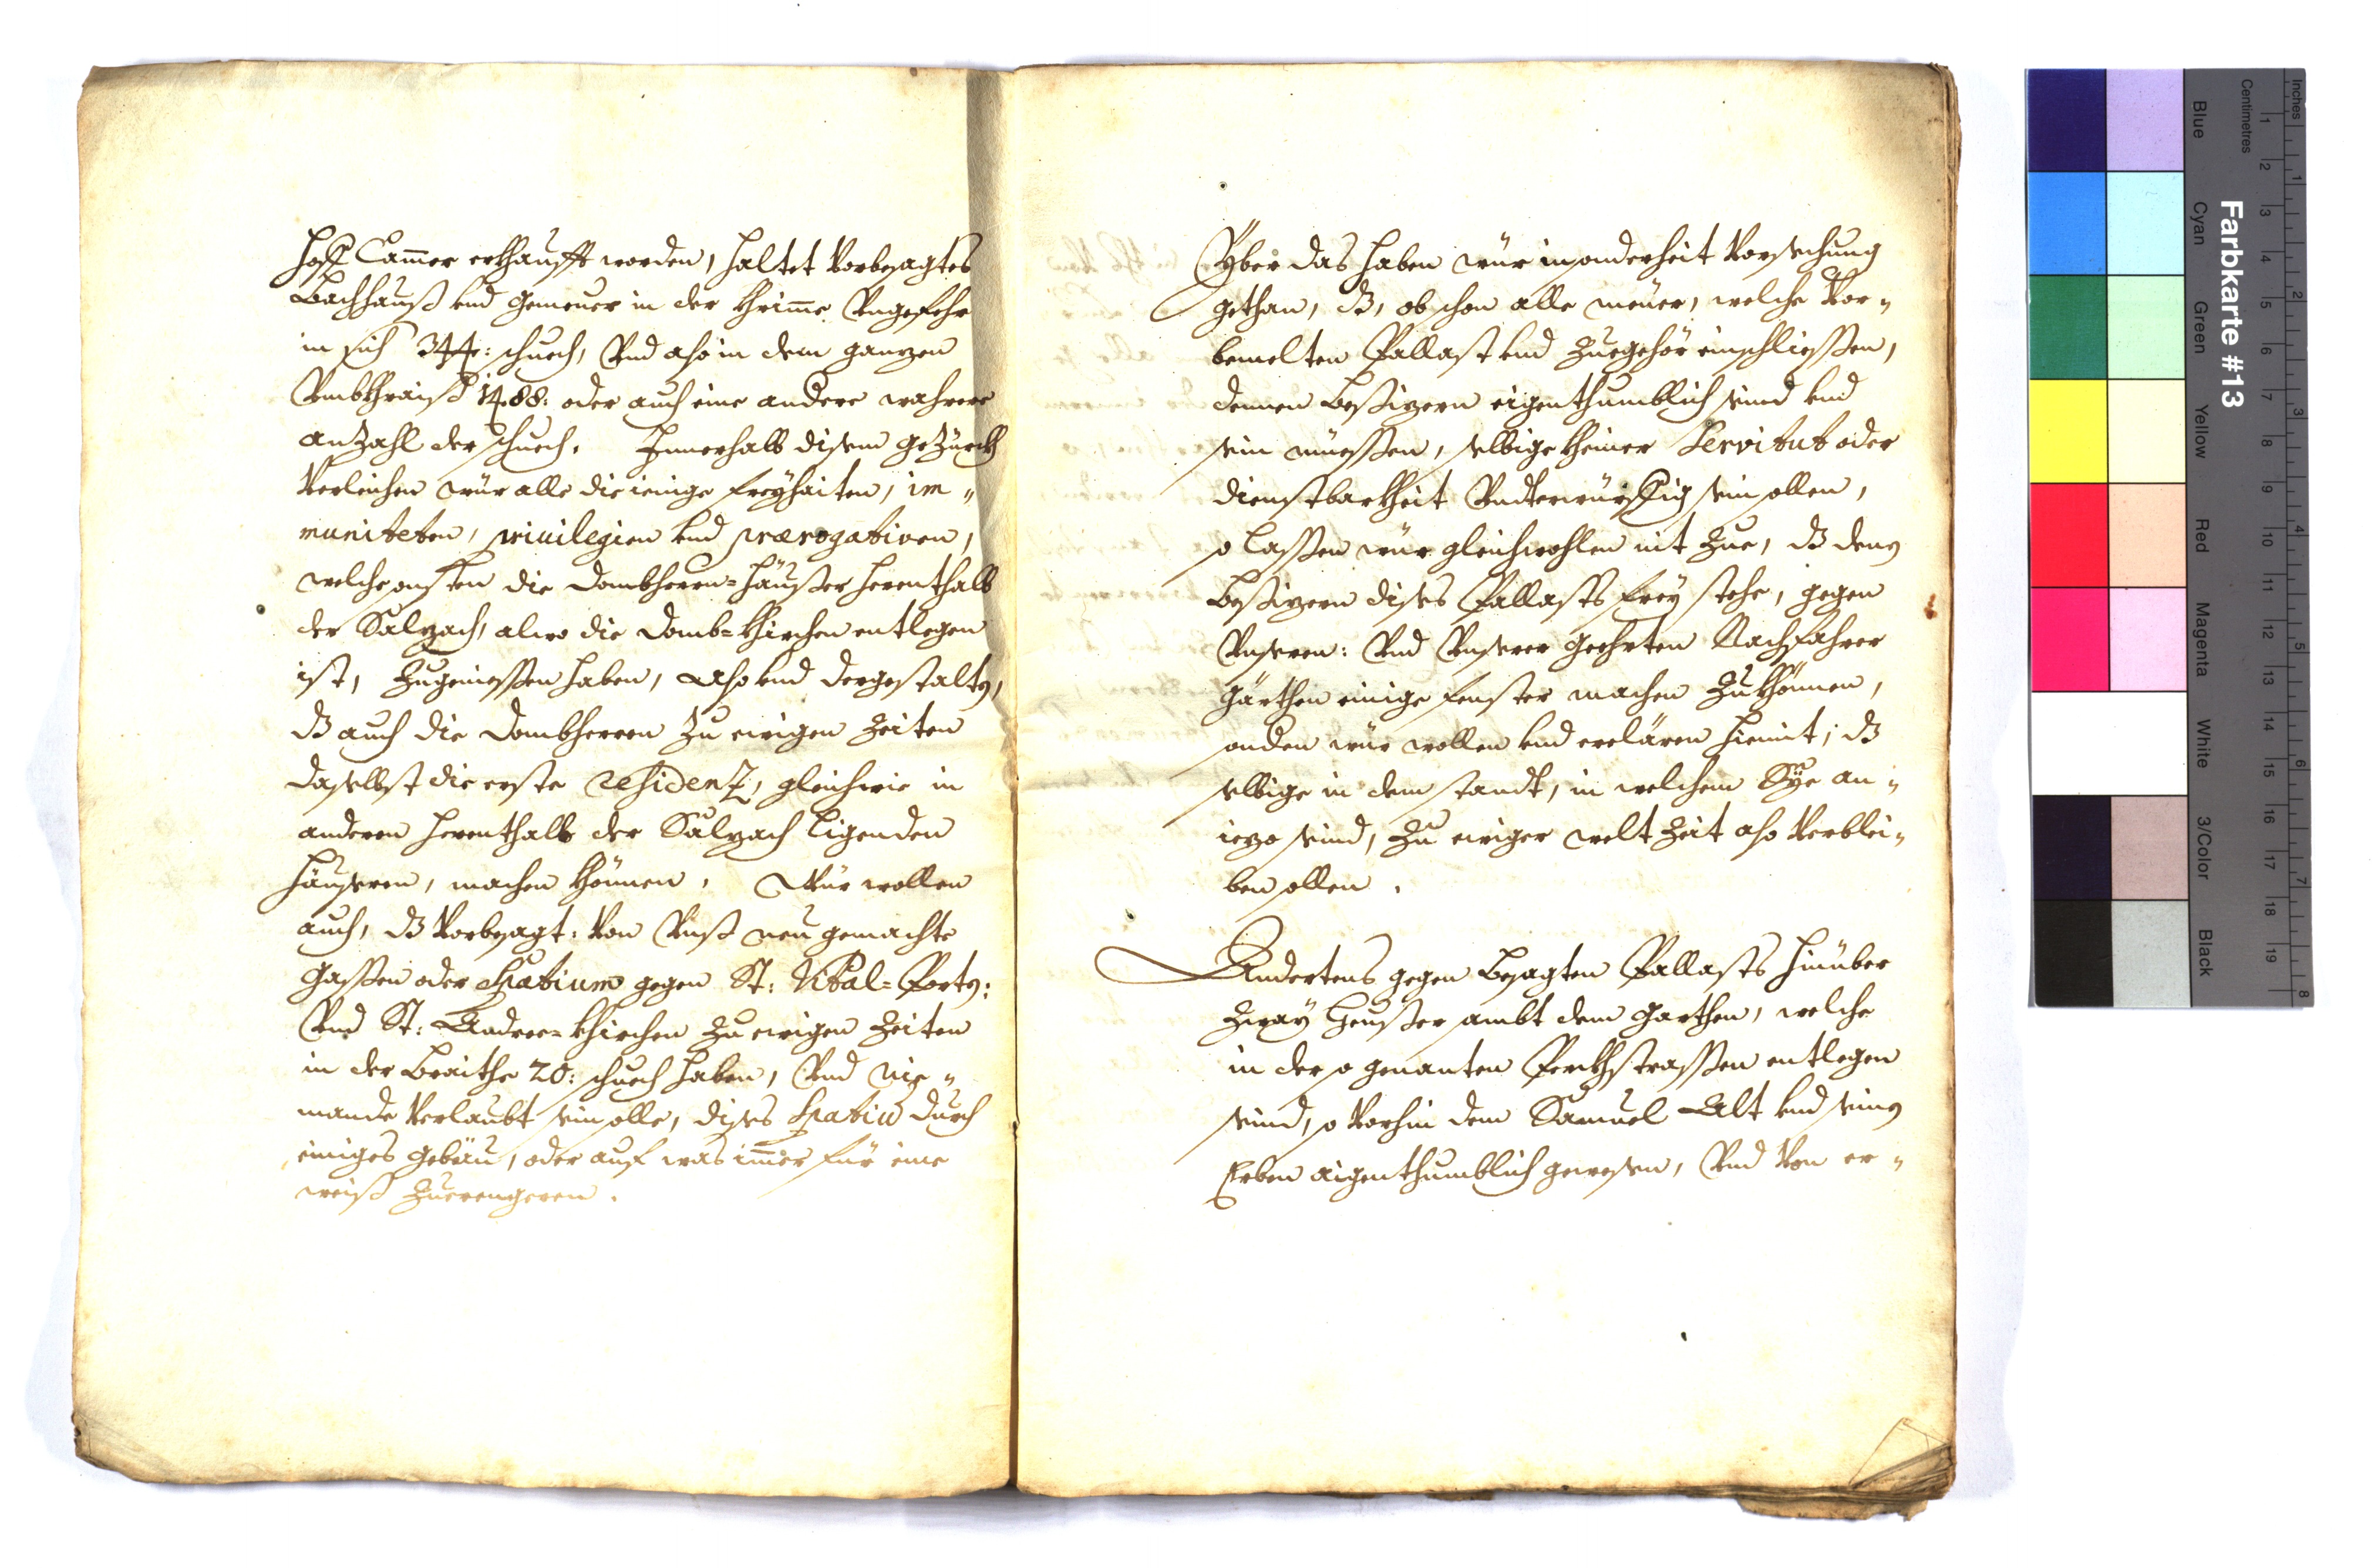 Hoff Cammer erkhaufft worden, haltet vorbesagtes
Bachhauß vnd gemeuer in der khrimme Vngefehr
in sich 344: schuech, Vnd also in dem ganzen
Vmbkhraiß 1488: oder auch eine andere wahrere
anZahl der schuech. Innerhalb disem geZürckh
verleichen wür alle die ienige freyhaiten, im„
muniteten, priuilegien vnd prærogativen,
welche sonsten die Dombherrn=Häußer herenthalb
der Salzach, alwo die Domb=khirchen entlegen
ist, Zugeniessen haben, also vnd dergestalten,
dß auch die Dombherren Zu ewigen Zeiten
daselbst die erste residenz, gleichwie in
anderen herenthalb der Salzach ligenden
Häuseren, machen khönnen. Wür wollen
auch, dß vorbesagt: von Vnß neu gemachte
gassen oder spatium gegen St: Vital=Porten:
Vnd St: Andree=khirchen Zu ewigen Zeiten
in der Braithe 20: schuech haben, Vnd nie„
mande verlaubt sein solle, dises Spatiu durch
einiges gebäu, oder auf was im̄er für eine
weiß Zuerengeren.
Yber das haben wür insonderheit Vorsechung
gethan, dß, ob schon alle meüer, welche vor„
bemelten Pallast vnd Zuegehör einschliessen,
dennen Besizern eigenthumblich seind vnd
sein müessen, selbige kheiner Servitut oder
dienstbarkheit Vnderwürffig sein sollen,
so lassen wür gleichwohlen nit Zue, dß denen
Besizern dises Pallasts frey stehe, gegen
Vnseren: Vnd Vnserer geehrten Nachfahrer
gärthen einige fenster machen Zu khönnen,
sonden wür wollen vnd erclären hiemit; dß
selbige in dem standt, in welchem Sÿe an„
iezo seind, Zu ewiger welt Zeit also verblei„
ben sollen.
Andertens gegen besagten Pallasts hinüber
Zwaÿ Heußer sambt dem garthen, welche
in der so genanten Perckhstrassen entlegen
seind, so vorhin dem Samuel Alt vnd seinen
Erben aigenthumblich gewesen, Vnd von er„
Farbkarte #13
Inches
Centimetres
1 2 3 4 5 6 7 8
1 2 3 4 5 6 7 8 9 10 11 12 13 14 15 16 17 18 19
Blue Cyan Green Yellow Red Magenta White 3/Color Black